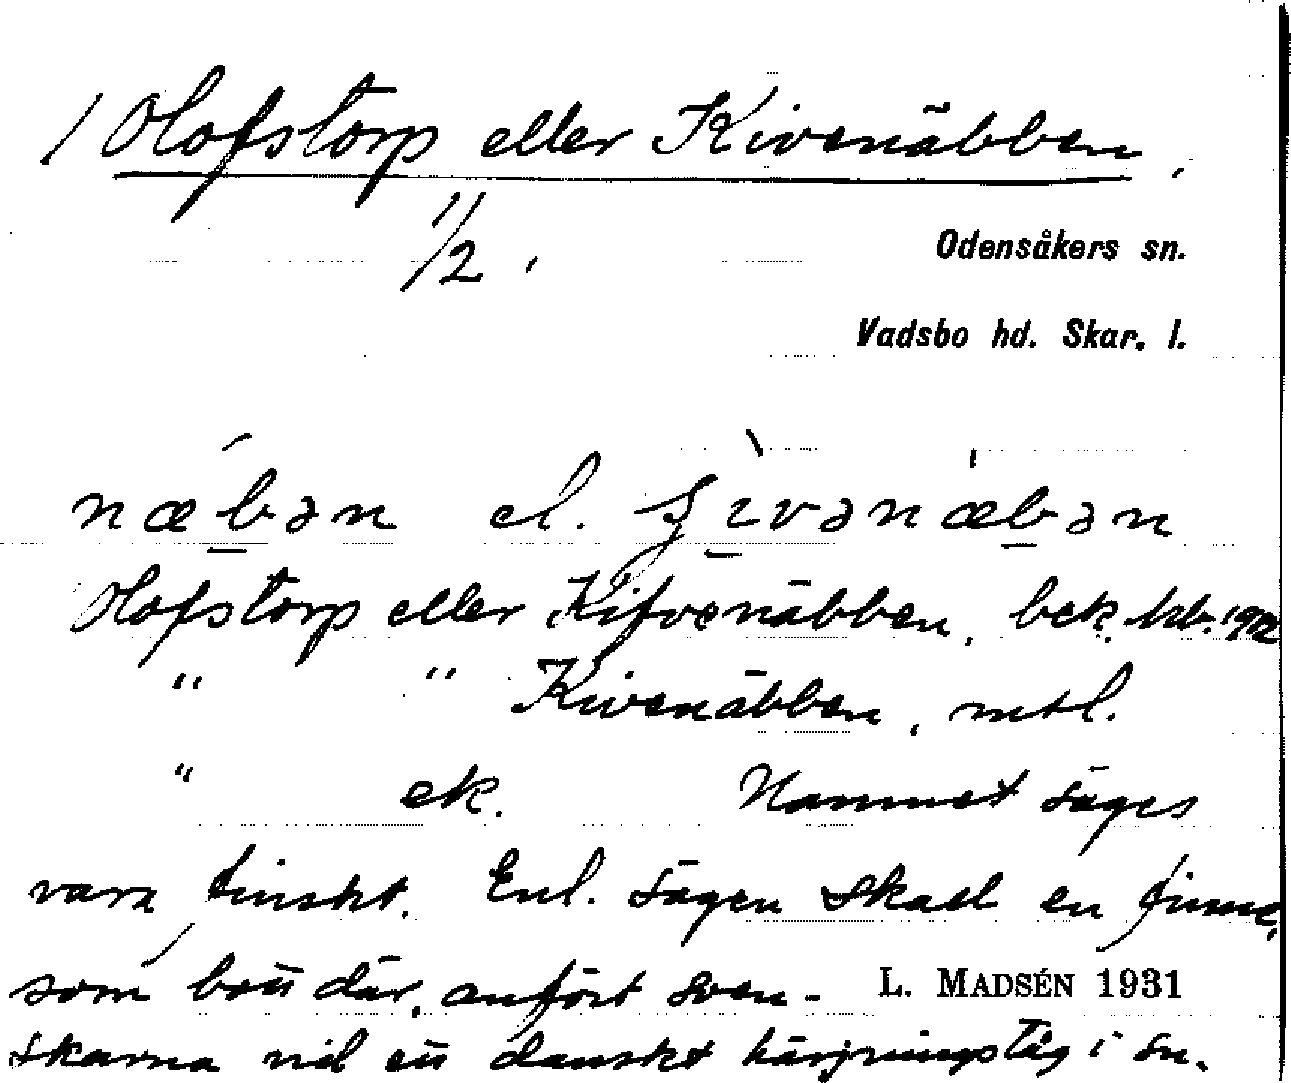 / Olofstorp eller Kivenäbben,
1/2.
Odensåkers sn.
Vadsbo hd. Skar. l.
næbən el. ʃivənæbən
Olofstorp eller Kifvenäbben, bek. kb. 1912
" " Kivenäbben, mtl.
" ek. Namnet säges
vara finskt. Enl. sägen skall en finne,
som bott där, anfört sven-
L. MADSÉN 1931
skarna vid ett danskt härjningståg i sn.